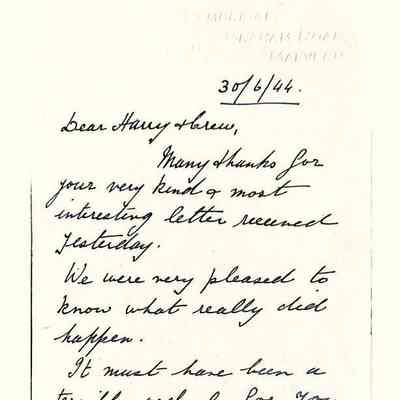 30/6/44.
Dear Harry & Crew,
Many thanks for
your very kind & most
interesting letter received
yesterday.
We were very pleased to
know what really did
happen.
It must have been a